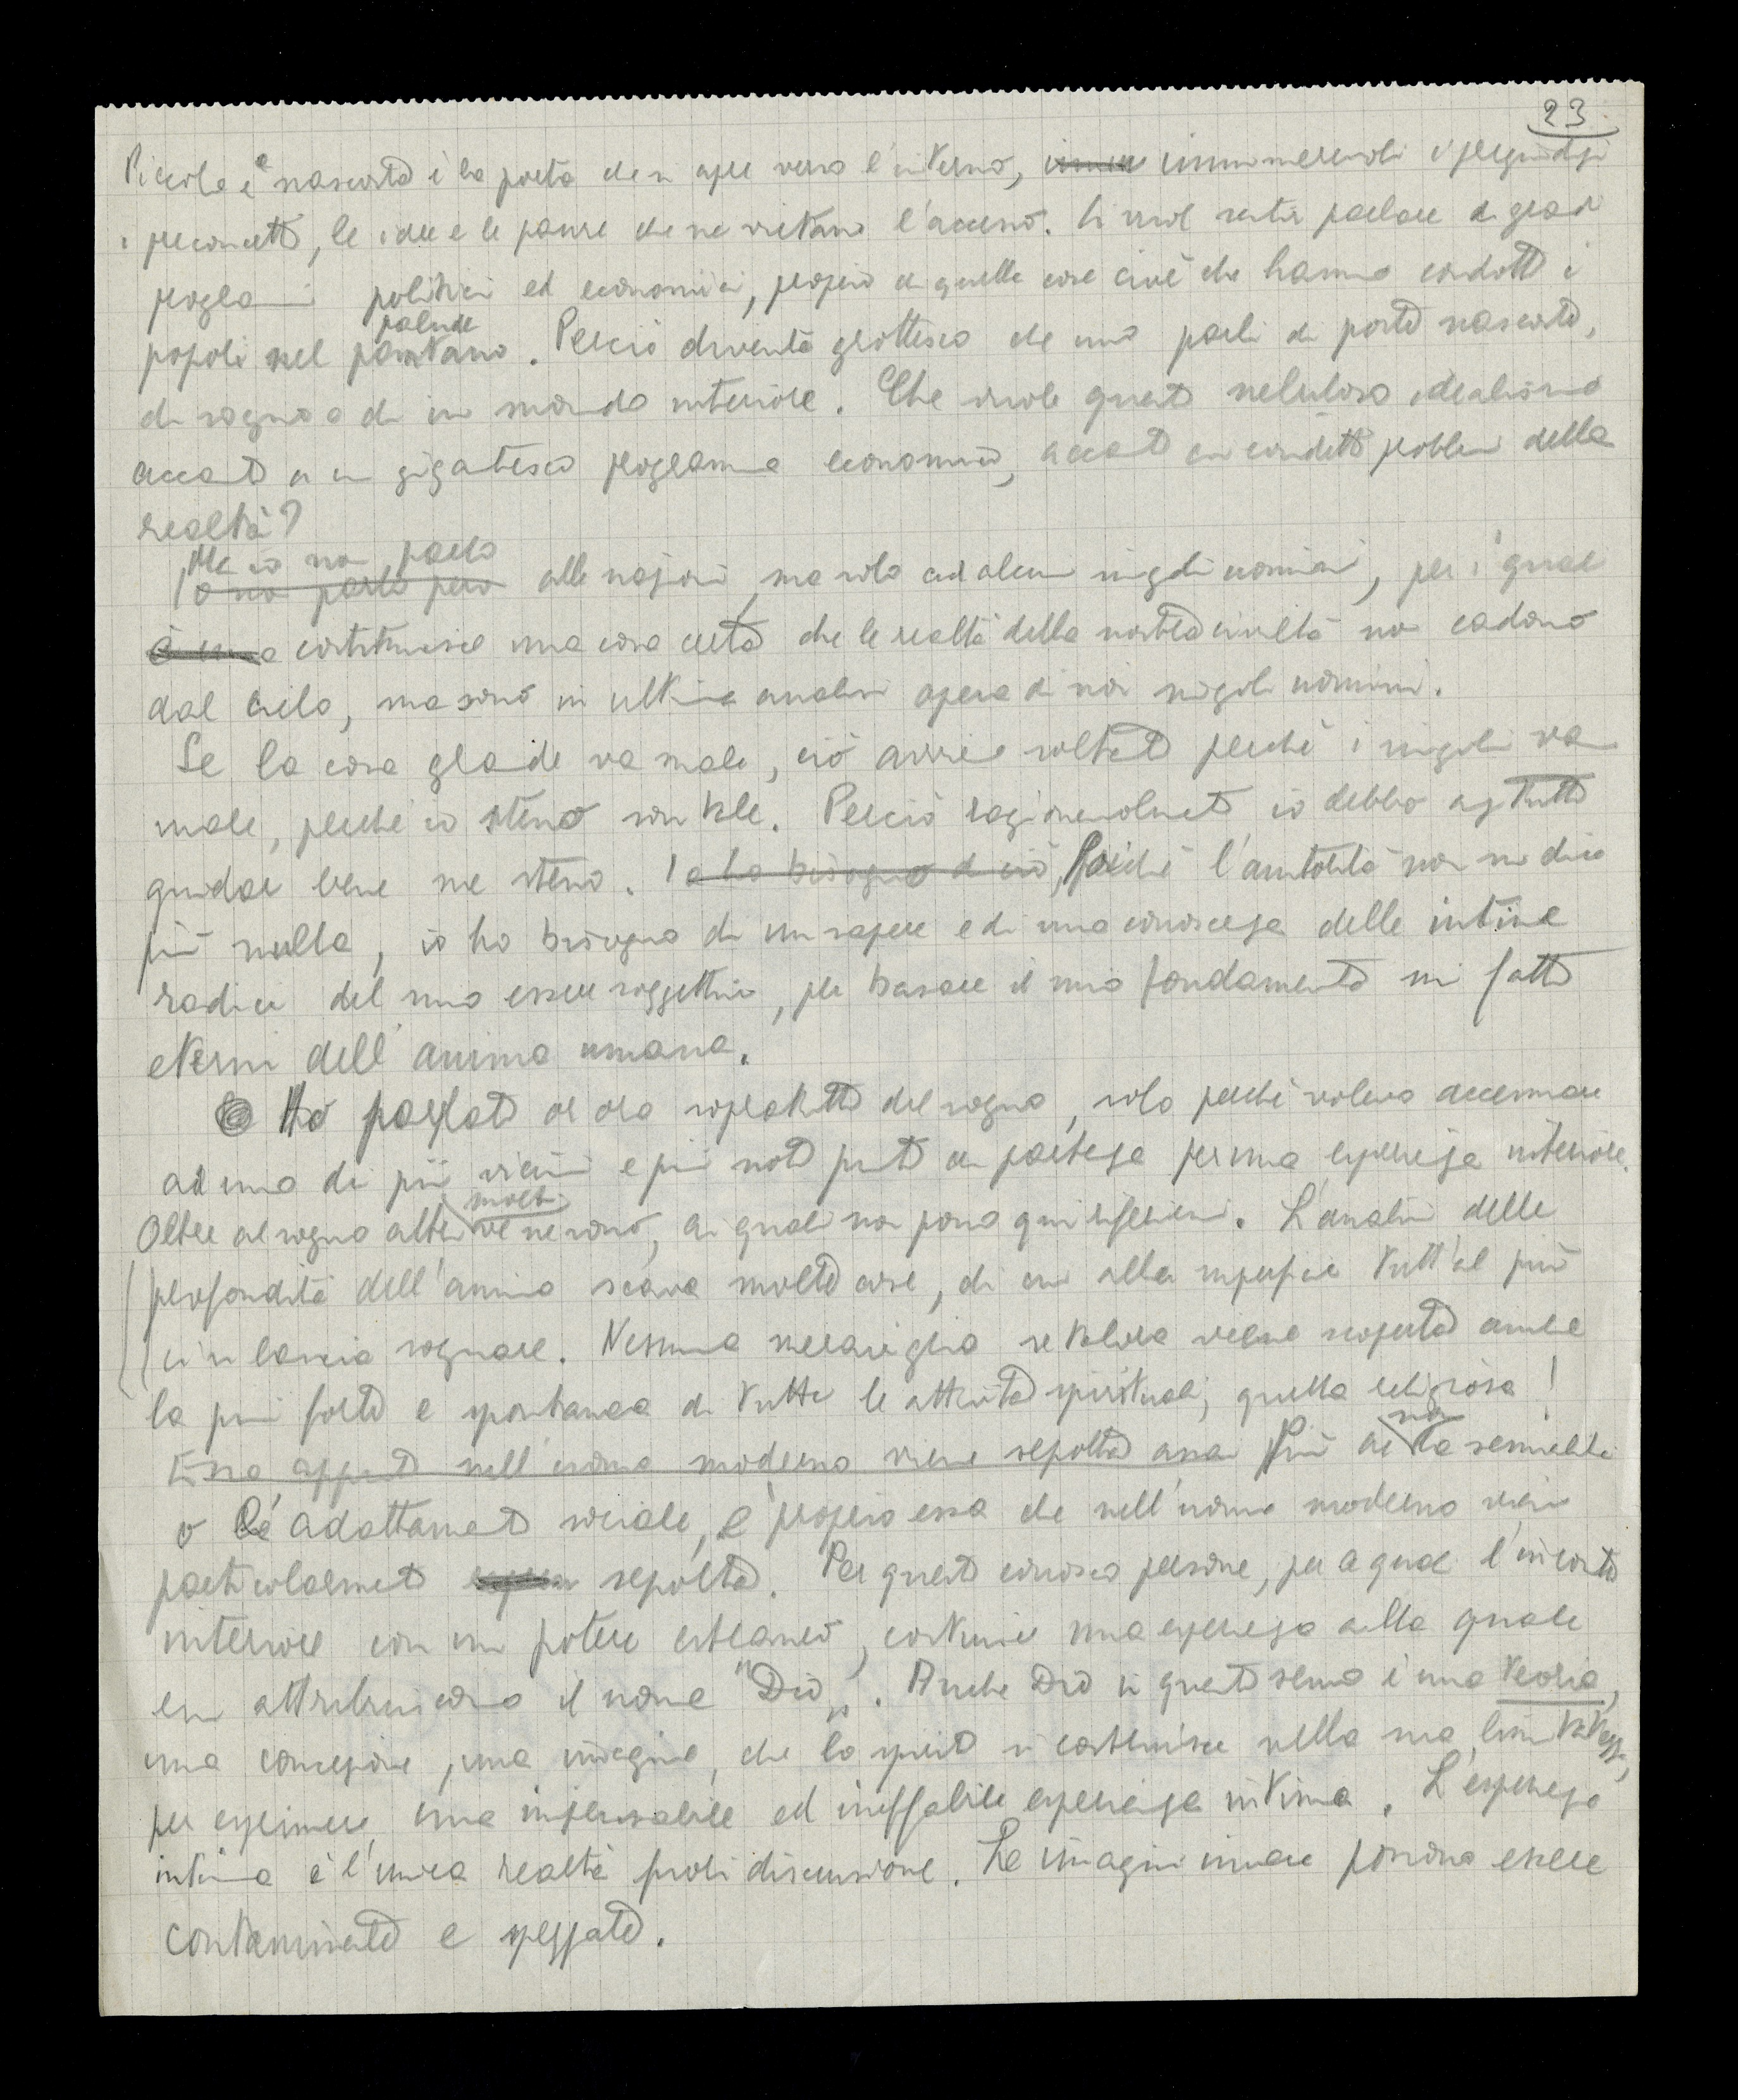 23
Piccola e nascosta è la porta che si apre verso l'interno, innumerevoli i pregiudizi
i preconcetti, le idee e le paure che ne vietano l'accesso. Si vuol sentir parlare di grandi
programmi politici ed economici, proprio di quelle cose cioè che hanno condotto i
palude
popoli nel pantano. Perciò diventa grottesco che uno parli di porte nascoste,
di sogno e di un mondo interiore. Che vuole questo nebuloso idealismo
accanto a un gigantesco programma economico, accanto ai cosidetti problemi della
realtà?
Ma io non parlo
Io non parlo però alle nazioni, ma solo ad alcuni singoli uomini, per i quali
è una costituisce una cosa certa che le realtà della nostra civiltà non cadono
dal cielo, ma sono in ultima analisi opera di noi singoli uomini.
Se la cosa grande va male, ciò avviene soltanto perché i singoli vanno
male, perché io stesso son tale. Perciò ragionevolmente io debbo anzitutto
guidar bene me stesso. Io ho bisogno di ciò, Poiché l'autorità non mi dice
più nulla, io ho bisogno di un sapere e di una conoscenza delle intime
radici del mio essere soggettivo, per basare il mio fondamento sui fatti
eterni dell'anima umana.
Ho parlato or ora sopratutto del sogno, solo perché volevo accennare
ad uno dei più vicini e più noti punti di partenza per una esperienza interiore.
molti
Oltre al sogno altri ve ne sono, ai quali non posso qui riferirmi. L'analisi delle
profondità dell'anima scava molte cose, di cui alla superficie tutt'al più
ci si lascia sognare. Nessuna meraviglia se talora viene scoperta anche
la più forte e spontanea di tutte le attività spirituali, quella religiosa!
non
Essa appunto nell'uomo moderno viene sepolta assai più che la sessualità
o l'adattamento sociale, è proprio essa che nell'uomo moderno viene
particolarmente sepolta. Per questo conosco persone, per le quali l'incontro
interiore con un potere estraneo, costituisce una esperienza alla quale
essi attribuiscono il nome "Dio". Anche Dio in questo senso è una teoria,
una concezione, una imagine, che lo spirito si costruisce nella sua limitatezza,
per esprimere una impensabile ed ineffabile esperienza intima. L'esperienza
intima è l'unica realtà fuori discussione. Le imagini invece possono essere
contaminate e spezzate.